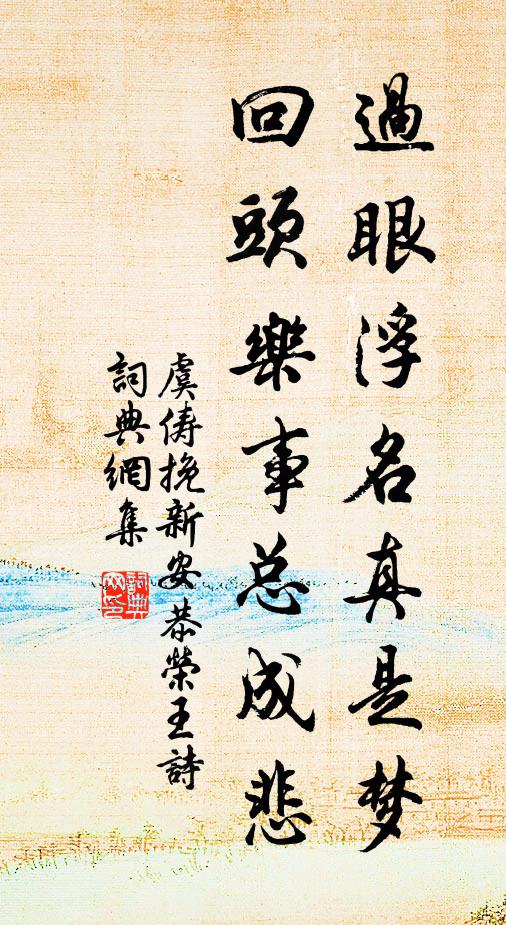 過眼浮名真是梦
回頭樂事总成悲
虞俦挽新安恭榮王詩
詞典網集
詞典網印